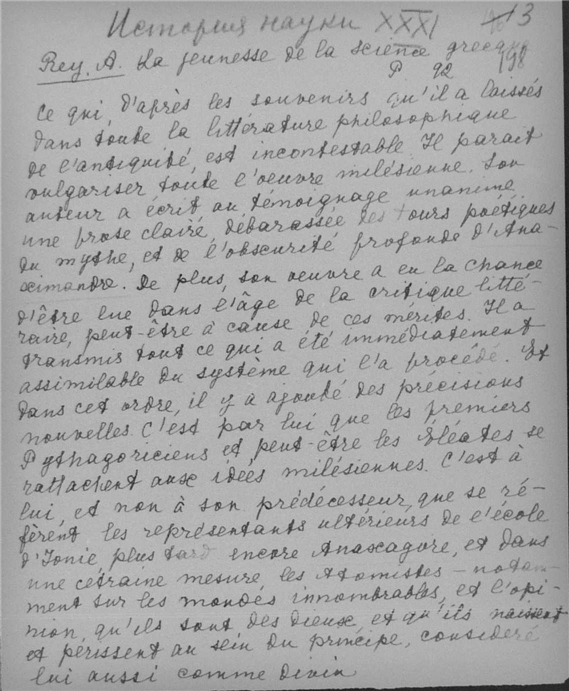 История науки XXXI 13
Rey. A. La jeunesse de la science grecque 198
P 92
Ce qui, d'après les souvenirs qu'il a laissés
dans toute la littérature philosophique
de l'antiquité, est incontestable Il parait
vulgariser toute l'oeuvre milésienne. Son
auteur a écrit au témoignage unanime
une prose claire, débarassée des tours poétiques
du mythe, et de l'obscurité profonde d'Ana-
ximandre. De plus, son oeuvre a eu la chance
d'être lue dans l'âge de la critique litté-
raire, peut-être à cause de ces mérites. Il a
transmis tout ce qui a été immédiatement
assimilable du système qui l'a procédé. Et
dans cet ordre, il y a ajouté des précisions
nouvelles. C'est par lui que les premiers
Pythagoriciens et peut-être les Eléates se
rattachent aux idées milésiennes. C'est à
lui, et non à son prédecesseur, que se ré-
fèrent les représentants ultérieurs de l'école
d'Ionie plus tard encore Anaxagore, et dans
une cetraine mesure, les Atomistes – notam-
ment sur les mondes innombrables, et l'opi-
nion, qu'ils sont des dieux, et qu'ils naissent
et périssent au sein du principe, consideré
lui aussi comme divin